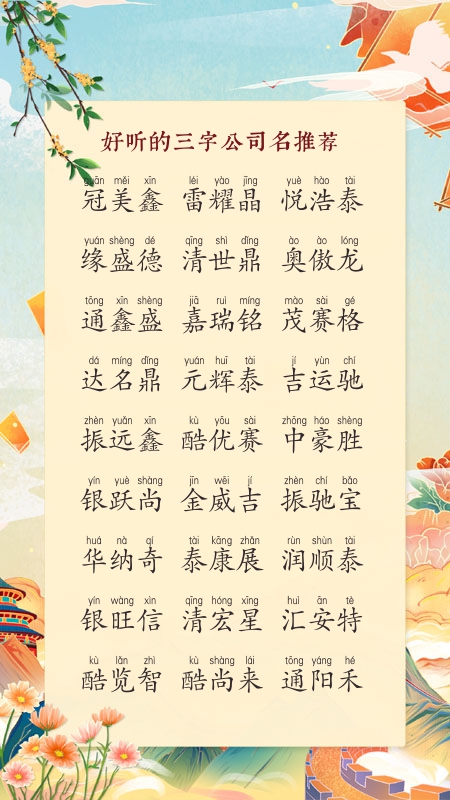 好听的三字公司名推荐
guān měi xīn léi yào jīng yuè hào tài
冠美鑫 雷耀晶 悦浩泰
yuán shèng dé qīng shì dǐng ào ào lóng
缘盛德 清世鼎 奥傲龙
tōng xīn shèng jiā ruì míng mào sài gé
通鑫盛 嘉瑞铭 茂赛格
dá míng dǐng yuán huī tài jí yùn chí
达名鼎 元辉泰 吉运驰
zhèn yuǎn xīn kù yōu sài zhōng háo shèng
振远鑫 酷优赛 中豪胜
yín yuè shàng jīn wēi jí zhèn chí bǎo
银跃尚 金威吉 振驰宝
huá nà qí tài kāng zhǎn rùn shùn tài
华纳奇 泰康展 润顺泰
yín wàng xìn qīng hóng xīng huì ān tè
银旺信 清宏星 汇安特
kù lǎn zhì kù shàng lái tōng yáng hé
酷览智 酷尚来 通阳禾